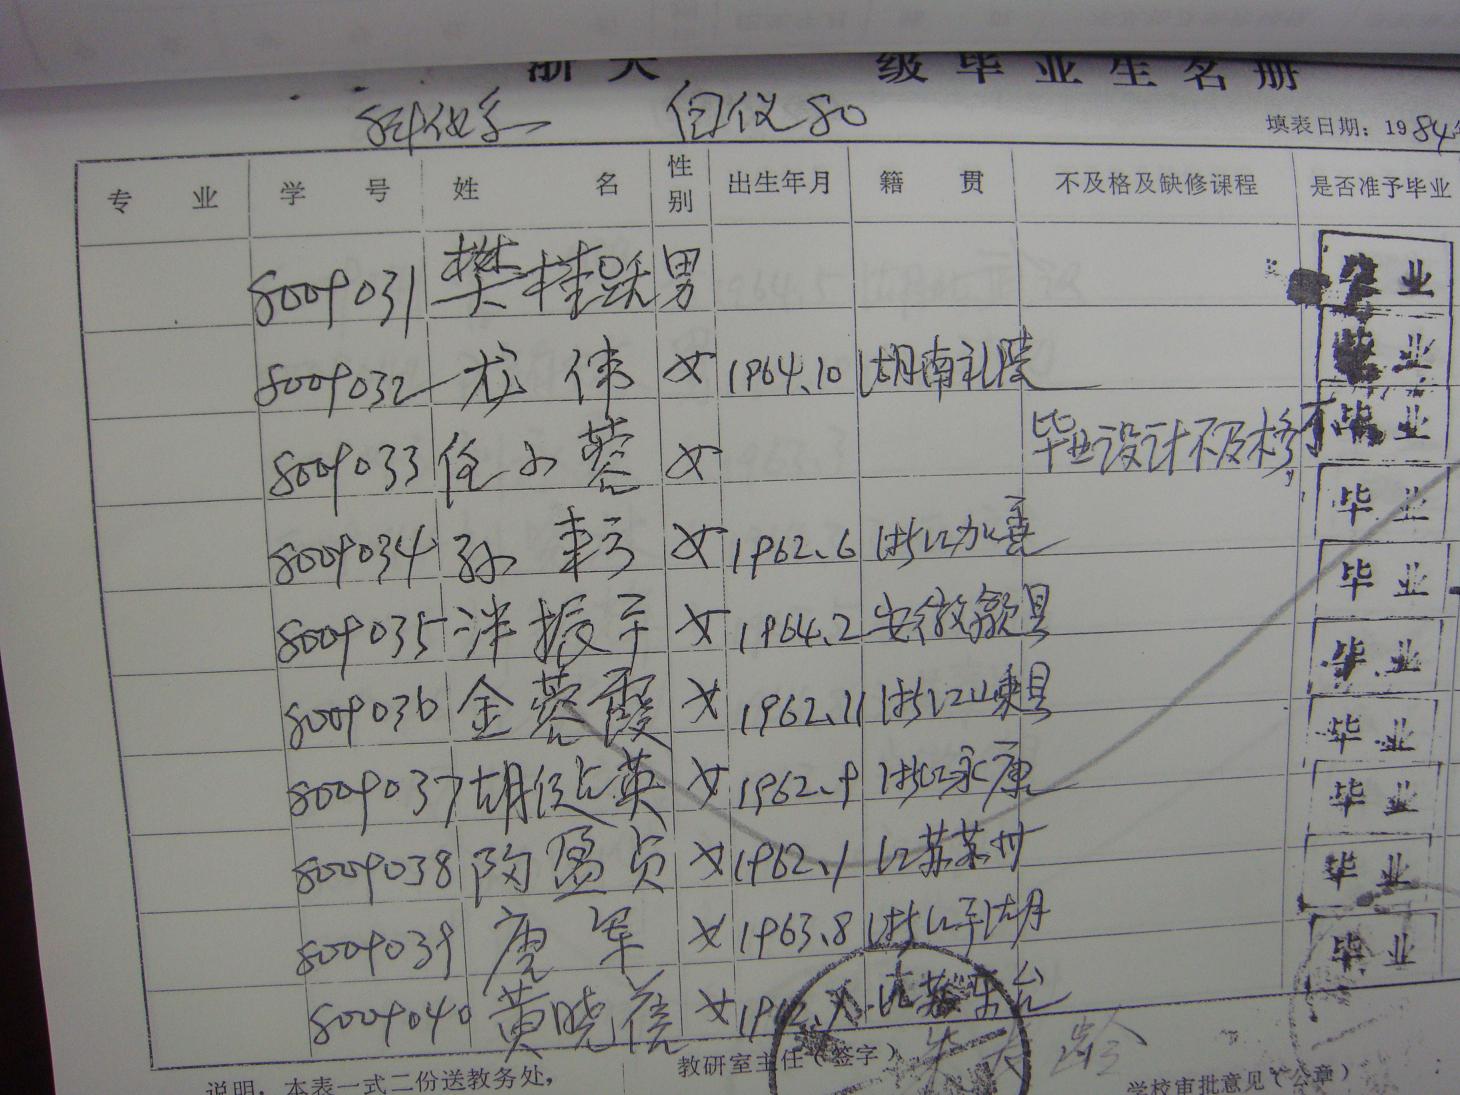 浙大 级毕业生名册
自仪80
填表日期：1984年
专业 学号 姓名 性别 出生年月 籍贯 不及格及缺修课程 是否准予毕业
8009031 樊桂跃 男 毕业
8009032 尤伟 女 1964.10 湖南礼陵 毕业
8009033 任小蓉 女 毕业设计不及格, 不毕业
8009034 孙 女 1962.6 浙江加善 毕业
8009035 洋振平 女 1964.2 安徽歙县 毕业
8009036 金蓉霞 女 1962.11 浙江嵊县 毕业
8009037 胡 英 女 1962.9 浙江永康 毕业
8009038 陶盈贞 女 1962.1 江苏苏州 毕业
8009039 唐军 女 1963.8 浙江平湖 毕业
8009040 黄晓蓓 女 江苏东台 毕业
说明：本表一式二份送教务处， 教研室主任（签字） 学校审批意见（公章）